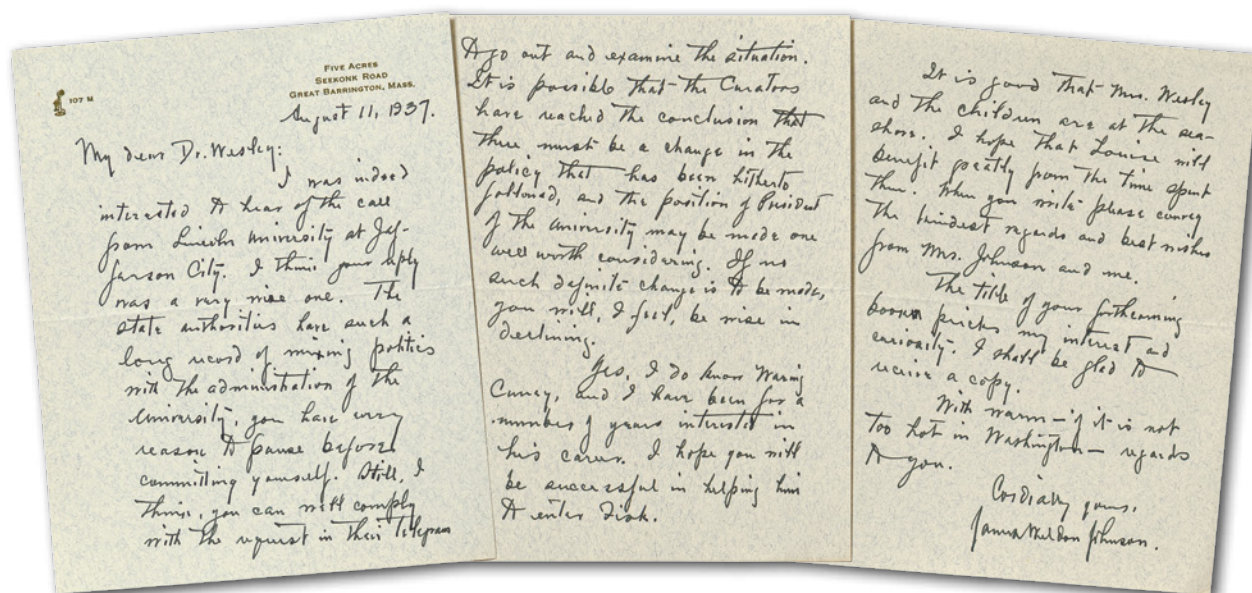 107 M
FIVE ACRES
SEEKONK ROAD
GREAT BARRINGTON, MASS.
August 11, 1937.
My dear Dr. Wesley:
I was indeed
interested to hear of the call
from Lincoln University at Jef-
ferson City. I think your reply
was a very wise one. The
state authorities have such a
long record of mixing politics
with the administration of the
University, you have every
reason to pause before
committing yourself. Still, I
think, you can well comply
with the request in their telegram
to go out and examine the situation.
It is possible that the Curators
have reached the conclusion that
there must be a change in the
policy that has been hitherto
followed, and the position of President
of the University may be made one
well worth considering. If no
such definite change is to be made,
you will, I feel, be wise in
declining.
Yes, I do know Waring
Cuney, and I have been for a
number of years interested in
his career. I hope you will
be successful in helping him
to enter Fisk.
It is good that Mrs. Wesley
and the children are at the sea-
shore. I hope that Louise will
benefit greatly from the time spent
there. When you write please convey
the kindest regards and best wishes
from Mrs. Johnson and me.
The title of your forthcoming
book pricks my interest and
curiosity. I shall be glad to
receive a copy.
With warm — if it is not
too hot in Washington — regards
to you.
Cordially yours,
James Weldon Johnson.